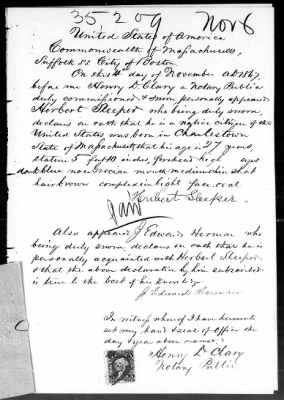 35209 Nov 6
United States of America
Commonwealth of Massachusetts,
Suffolk SS City of Boston.
On this 4th day of November A.D. 1867,
before me Henry D. Clary a Notary Public
duly commissioned & sworn personally appeared
Herbert Sleeper who being duly sworn,
declares on oath that he is a native citizen of the
United States, was born in Charlestown
State of Massachusetts, that his age is 27 years,
stature 5 feet 10 inches, forehead high eyes
dark blue nose roman mouth medium chin
hair brown complexion light face oval
Herbert Sleeper.
Paid
Also appeared J Edwards Herman who
being duly sworn declares on oath that he is
personally acquainted with Herbert Sleeper
& that the above declaration by him subscribed
is true to the best of his knowledge
J Edwards Herman
In witness whereof I have hereunto
set my hand & seal of Office the
day & year above named.
Henry D. Clary
Notary Public